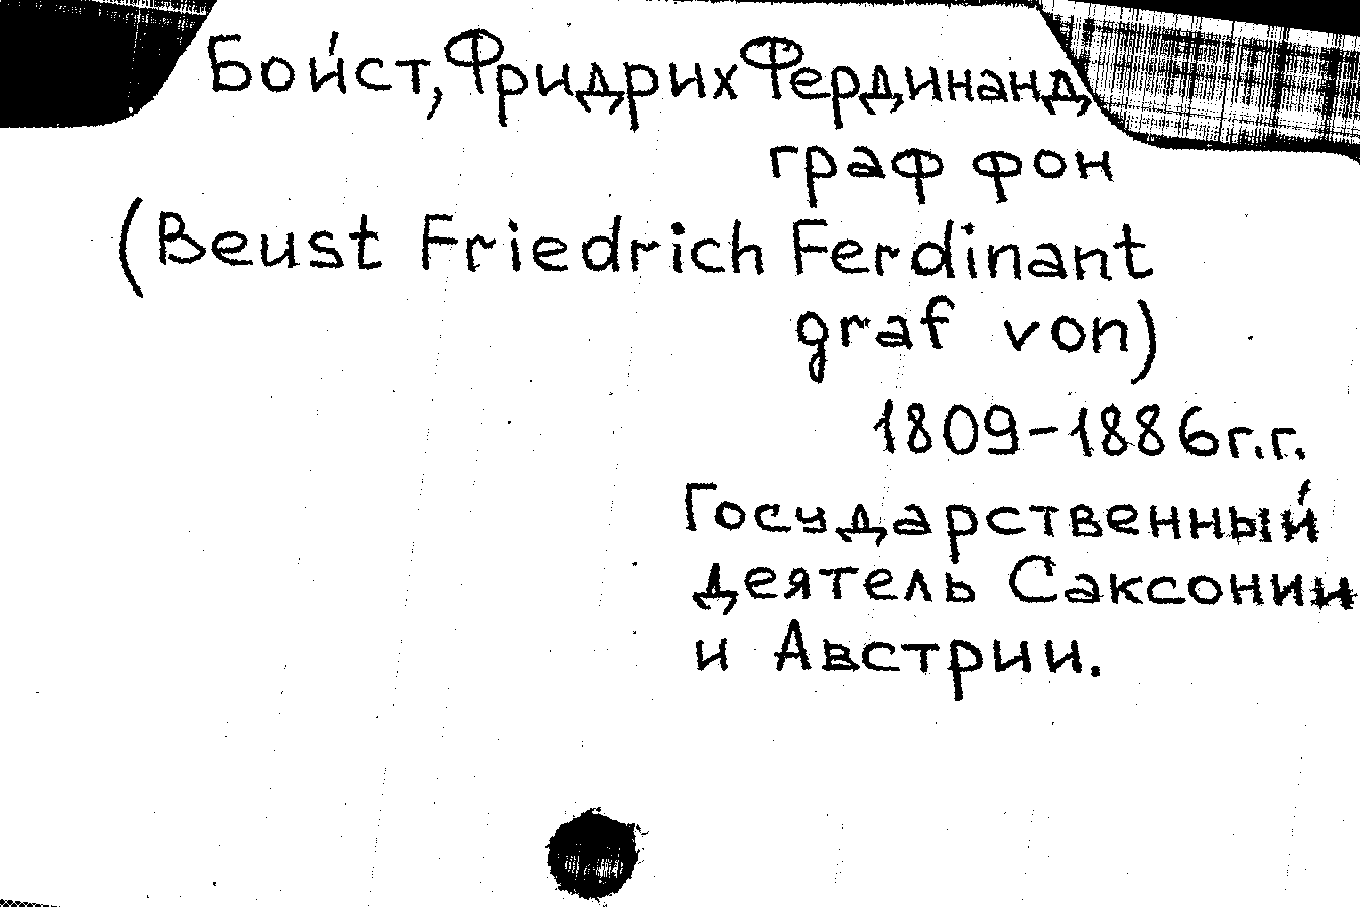 Бойст, Фридрих Фердинанд
граф фон
(Beust Friedrich Ferdinant
graf von)
1809-1886г.г.
Государственный
деятель Саксонии
и Австрии.